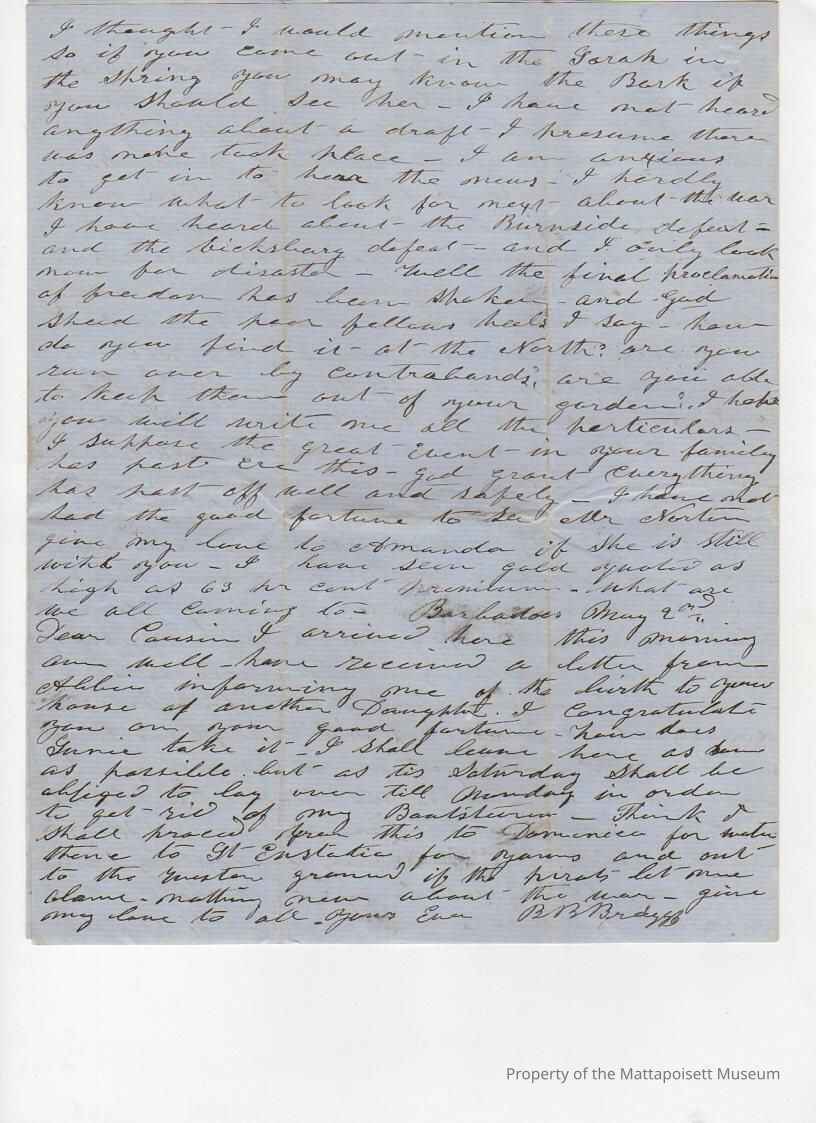 I thought I would mention these things
so if you come out in the Sarah in
the Spring you may know the Bark if
you should see her - I have not heard
anything about a draft - I presume there
was none took place - I am anxious
to get in to hear the news - I hardly
know what to look for next about the war
I have heard about the Burnside defeat -
and the Vicksburg defeat - and I only look
now for disaster - Well the final proclamation
of freedom has been spoken - and God
speed the poor fellows heals I say - how
do you find it at the North? are you
run over by contrabands? are you able
to keep them out of your garden? I hope
you will write me all the perticulars -
I suppose the great Event in your family
has past ere this - God grant everything
has past off well and safely - I have not
had the good fortune to see Mr Norton
give my love to Amanda if she is still
with you - I have seen gold quoted as
high as 63 pr cent premium - what are
we all coming to - Barbadoes May 2nd
Dear Cousin I arrived here this morning
am well - have received a letter from
Abbie informing me of the birth to your
house of another Daughter. I congratulate
you on your good fortune - how does
take it - I shall leave here as soon
as possible but as tis Saturday shall be
obliged to lay over till Monday in order
to get rid of my Boatsteerer - Think I
shall proceed from this to Dominica for water
thence to St Eustatia for yams and out
to the western ground if the pirats let me
alone - nothing new about the war - give
my love to all - yours Ever B B
Property of the Mattapoisett Museum